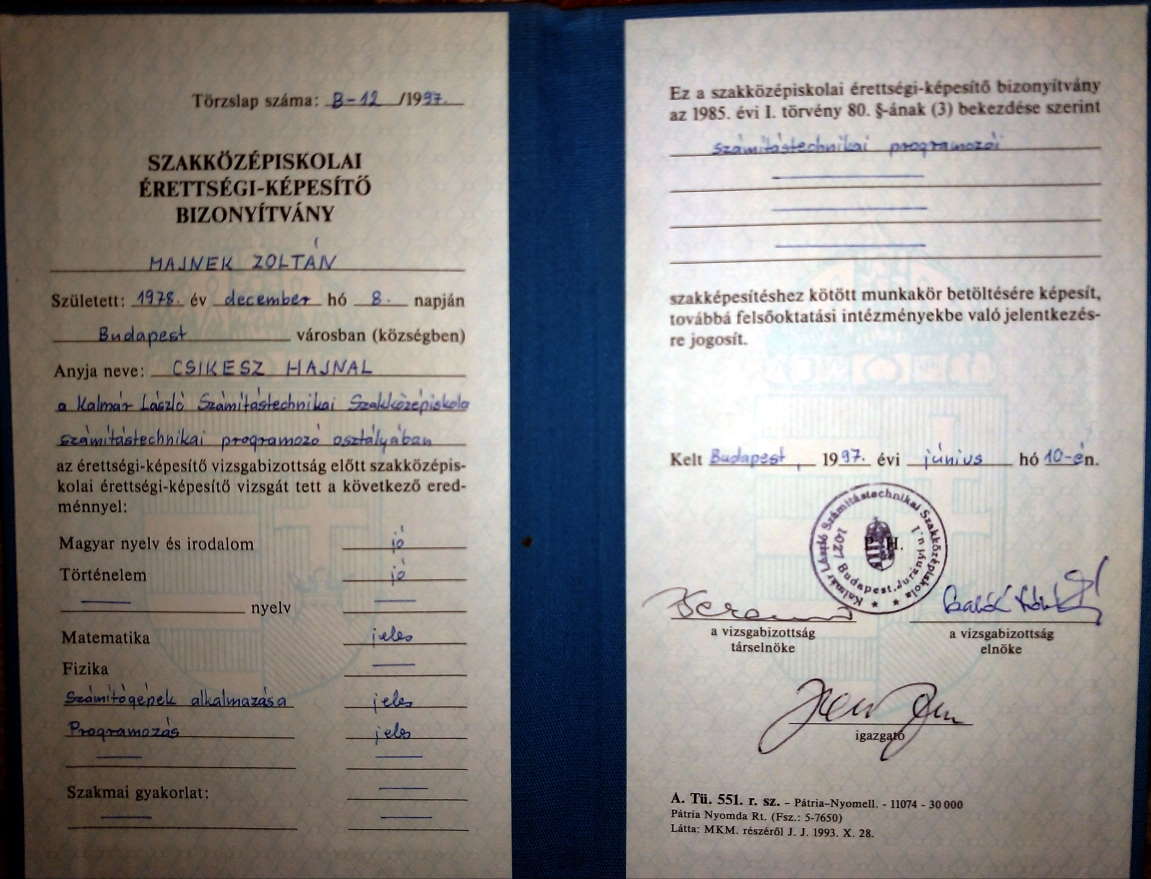 Törzslap száma: B-12 /1997.
SZAKKÖZÉPISKOLAI
ÉRETTSÉGI-KÉPESÍTŐ
BIZONYÍTVÁNY
MAJNEK ZOLTÁN
Született: 1978. év december hó 8. napján
Budapest városban (községben)
Anyja neve: CSIKESZ HAJNAL
a Kalmár László Számítástechnikai Szakközépiskola
számítástechnikai programozó osztályában
az érettségi-képesítő vizsgabizottság előtt szakközépis-
kolai érettségi-képesítő vizsgát tett a következő ered-
ménnyel:
Magyar nyelv és irodalom jó
Történelem jó
nyelv
Matematika jeles
Fizika
Számítógépek alkalmazása jeles
Programozás jeles
Szakmai gyakorlat:
Ez a szakközépiskolai érettségi-képesítő bizonyítvány
az 1985. évi I. törvény 80. §-ának (3) bekezdése szerint
számítástechnikai programozói
szakképesítéshez kötött munkakör betöltésére képesít,
továbbá felsőoktatási intézményekbe való jelentkezés-
re jogosít.
Kelt Budapest, 1997. évi június hó 10-én.
Kalmár László Számítástechnikai Szakközépiskola
1027 Budapest, Jurányi u. 1.
P. H.
a vizsgabizottság
társelnöke
a vizsgabizottság
elnöke
igazgató
A. Tü. 551. r. sz. - Pátria-Nyomell. - 11074 - 30 000
Pátria Nyomda Rt. (Fsz.: 5-7650)
Látta: MKM. részéről J. J. 1993. X. 28.